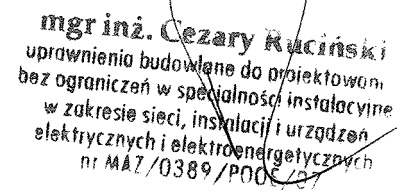 mgr inż. Cezary Ruciński
uprawnienia budowlane do projektowani
bez ograniczeń w specjalności instalacyjne
w zakresie sieci, instalacji i urządzeń
elektrycznych i elektroenergetycznych
nr MAZ/0389/POOE/07